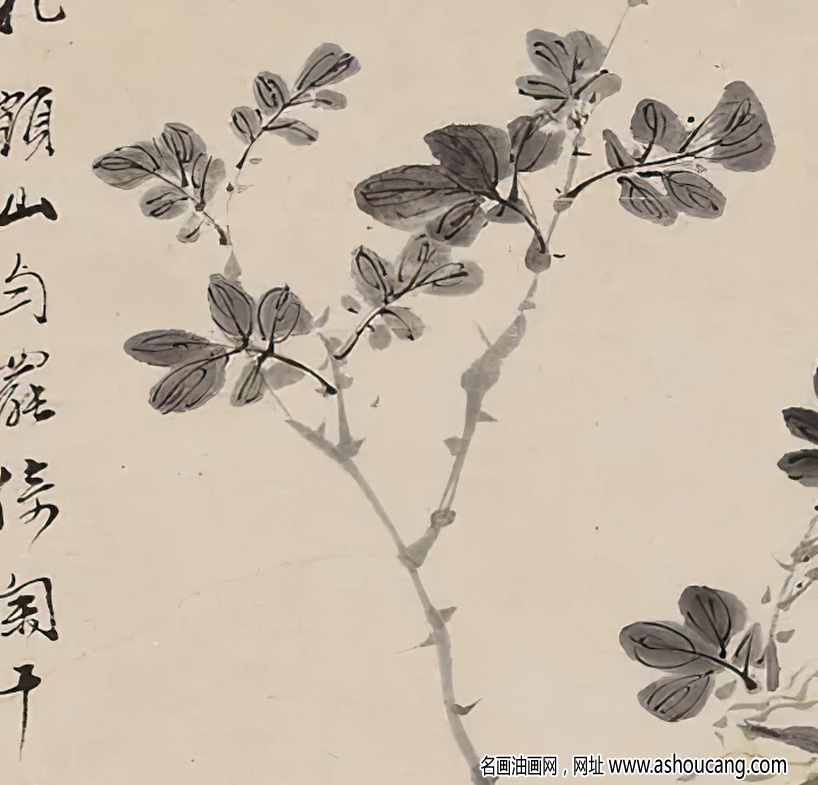 額山勻罷倚闌干
名画油画网，网址 www.ashoucang.com